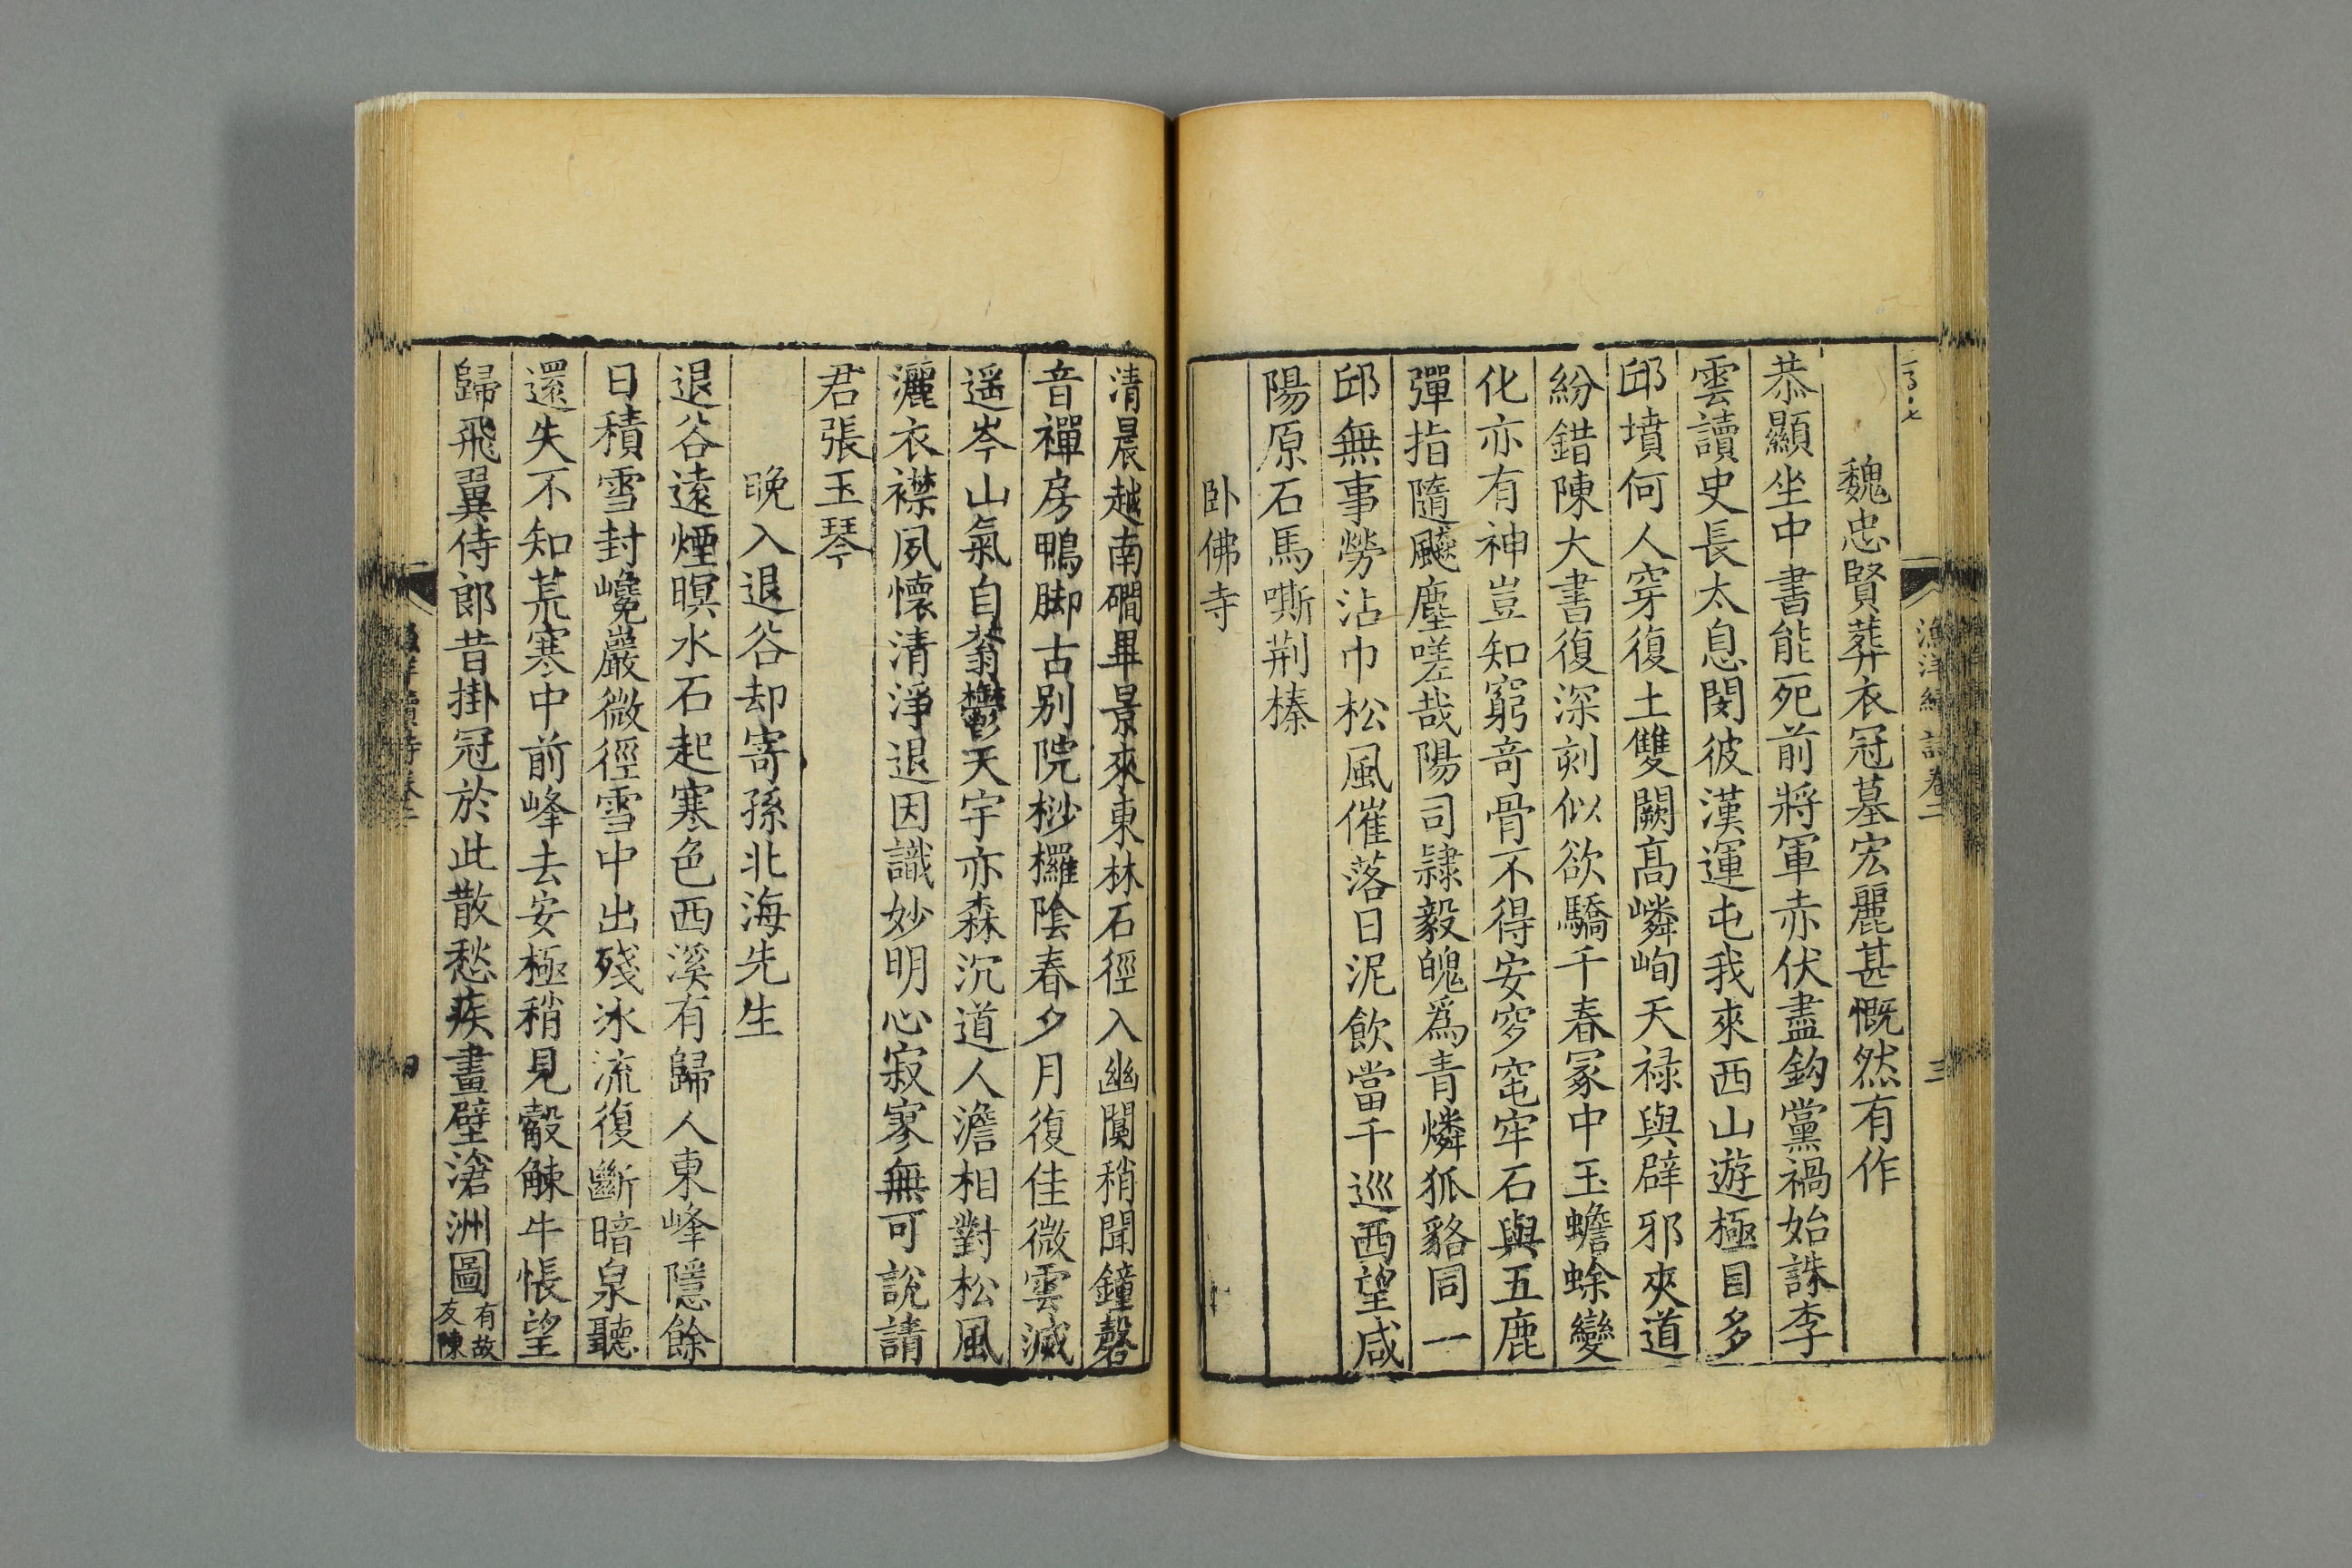 漁洋續詩卷二
三
魏忠賢葬衣冠墓宏麗甚慨然有作
恭顯坐中書能死前將軍赤伏盡鈎黨禍始誅李
雲讀史長太息閔彼漢運屯我來西山遊極目多
邱墳何人穿復土雙闕高嶙峋天祿與辟邪夾道
紛錯陳大書復深刻似欲驕千春冢中玉蟾蜍變
化亦有神豈知窮奇骨不得安穸窀牢石與五鹿
彈指隨飈塵嗟哉陽司隸毅魄爲青燐狐貉同一
邱無事勞沾巾松風催落日泥飲當千巡西望咸
陽原石馬嘶荆榛
卧佛寺
清晨越南磵畢景來東林石徑入幽闃稍聞鐘磬
音禪房鴨脚古别院桫欏陰春夕月復佳微雲滅
遥岑山氣自蓊鬱天宇亦森沉道人澹相對松風
灑衣襟夙懷清淨退因識妙明心寂寥無可說請
君張玉琴
晚入退谷却寄孫北海先生
退谷遠煙暝水石起寒色西溪有歸人東峰隱餘
日積雪封巉巖微徑雪中出殘冰流復斷暗泉聽
還失不知荒寒中前峰去安極稍見觳觫牛悵望
歸飛翼侍郎昔掛冠於此散愁疾畫壁滄洲圖有故
友陳
續詩卷二
四